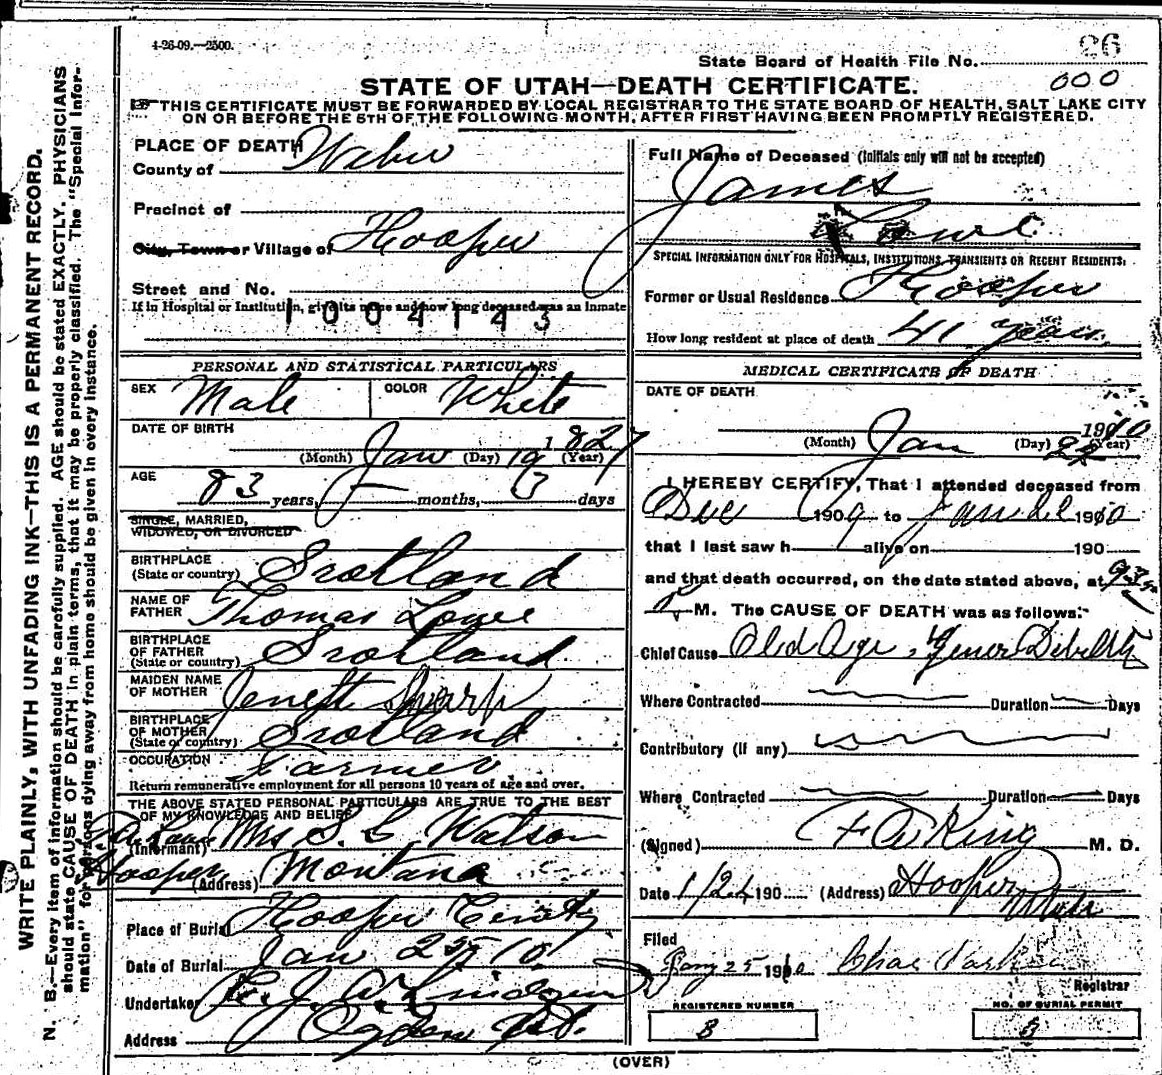 4-26-09.—2500.
26
State Board of Health File No.
000
STATE OF UTAH—DEATH CERTIFICATE.
THIS CERTIFICATE MUST BE FORWARDED BY LOCAL REGISTRAR TO THE STATE BOARD OF HEALTH, SALT LAKE CITY
ON OR BEFORE THE 5TH OF THE FOLLOWING MONTH, AFTER FIRST HAVING BEEN PROMPTLY REGISTERED.
WRITE PLAINLY, WITH UNFADING INK—THIS IS A PERMANENT RECORD.
N. B.—Every item of information should be carefully supplied. AGE should be stated EXACTLY. PHYSICIANS
should state CAUSE OF DEATH in plain terms, that it may be properly classified. The "Special Infor-
mation" for persons dying away from home should be given in every instance.
PLACE OF DEATH
County of Weber
Precinct of
City, Town or Village of Hooper
Street and No.
If in Hospital or Institution, give its name and how long deceased was an inmate
1004143
PERSONAL AND STATISTICAL PARTICULARS
SEX Male COLOR White
DATE OF BIRTH
(Month) Jan (Day) 19 (Year) 1827
AGE
83 years, — months, 3 days
SINGLE, MARRIED,
WIDOWED, OR DIVORCED
BIRTHPLACE
(State or country) Scotland
NAME OF
FATHER Thomas Lowe
BIRTHPLACE
OF FATHER
(State or country) Scotland
MAIDEN NAME
OF MOTHER Jenett Sharp
BIRTHPLACE
OF MOTHER
(State or country) Scotland
OCCUPATION Farmer
Return remunerative employment for all persons 10 years of age and over.
THE ABOVE STATED PERSONAL PARTICULARS ARE TRUE TO THE BEST
OF MY KNOWLEDGE AND BELIEF
(Informant) Mrs S. L Watson
Hooper (Address) Montana
Place of Burial Hooper Cemetery
Date of Burial Jan 25 10
Undertaker
Address Ogden Ut.
Full Name of Deceased (Initials only will not be accepted)
James
Lowe
SPECIAL INFORMATION ONLY FOR HOSPITALS, INSTITUTIONS, TRANSIENTS OR RECENT RESIDENTS:
Former or Usual Residence Hooper
How long resident at place of death 41 Years
MEDICAL CERTIFICATE OF DEATH
DATE OF DEATH
(Month) Jan (Day) 22 1910 (Year)
I HEREBY CERTIFY, That I attended deceased from
Dec 1909 to Jan 22 1910
that I last saw h alive on 190
and that death occurred, on the date stated above, at 9:35
M. The CAUSE OF DEATH was as follows:
Chief Cause Old Age, Gener Debility
Where Contracted Duration Days
Contributory (if any)
Where Contracted Duration Days
(Signed) F A King M. D.
Date 1/24 190 (Address) Hooper Utah
Filed
Jany 25 1910 Chas Parker
Registrar
REGISTERED NUMBER
3
NO. OF BURIAL PERMIT
3
(OVER)